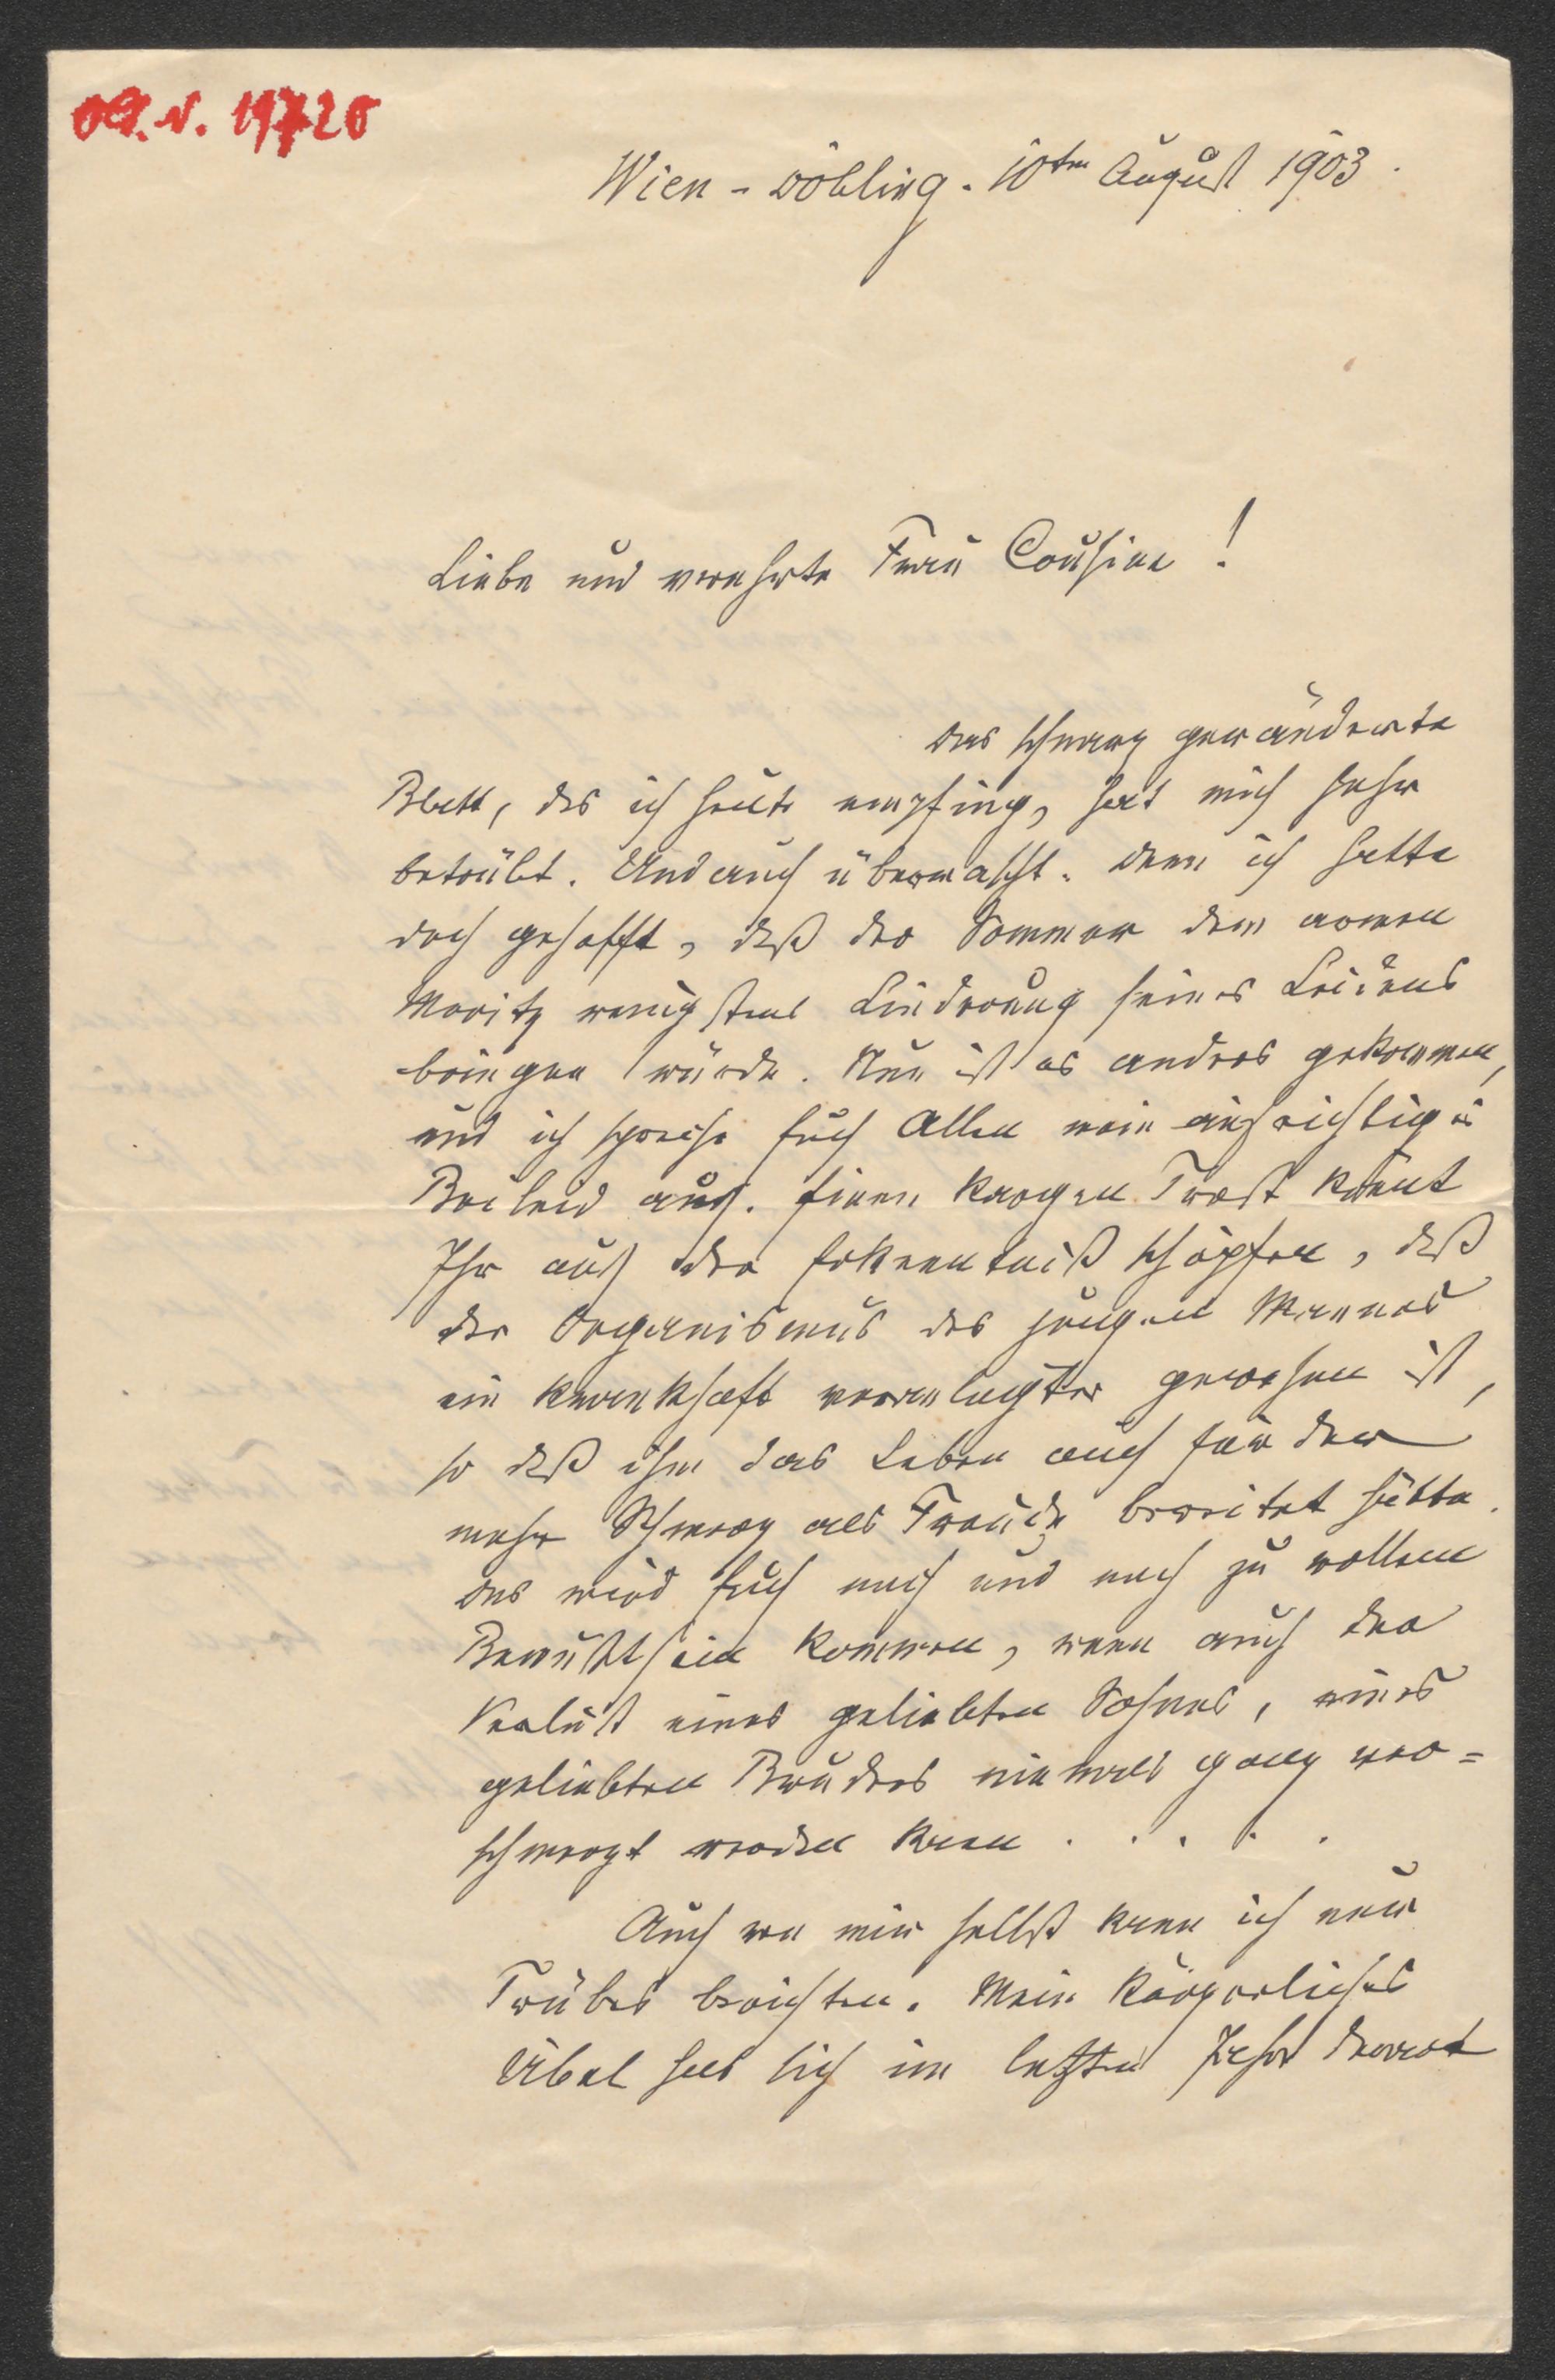 J. N. 19720
Wien-Döbling. 10ten August 1903.
Liebe und verehrte Frau Cousine!
Das schwarz geränderte
Blatt, das ich heute empfing, hat mich sehr
betrübt. Und auch überrascht. Denn ich hatte
doch gehofft, daß der Sommer dem armen
Moritz wenigstens Linderung seines Leidens
bringen würde. Nun ist es anders gekommen,
und ich spreche Euch Allen mein aufrichtiges
Beileid aus. Einen kargen Trost könnt
Ihr aus der Erkenntniß schöpfen, daß
der Organismus des jungen Mannes
ein krankhaft veranlagter gewesen ist,
so daß ihm das Leben auch fürder
mehr Schmerz als Freude bereitet hätte.
Das wird Euch nach und nach zu vollem
Bewußtsein kommen, wenn auch der
Verlust eines geliebten Sohnes, eines
geliebten Bruders niemals ganz ver=
schmerzt werden kann . . . . .
Auch von mir selbst kann ich nur
Trübes berichten. Mein körperliches
Übel hat sich im letzten Jahr derart